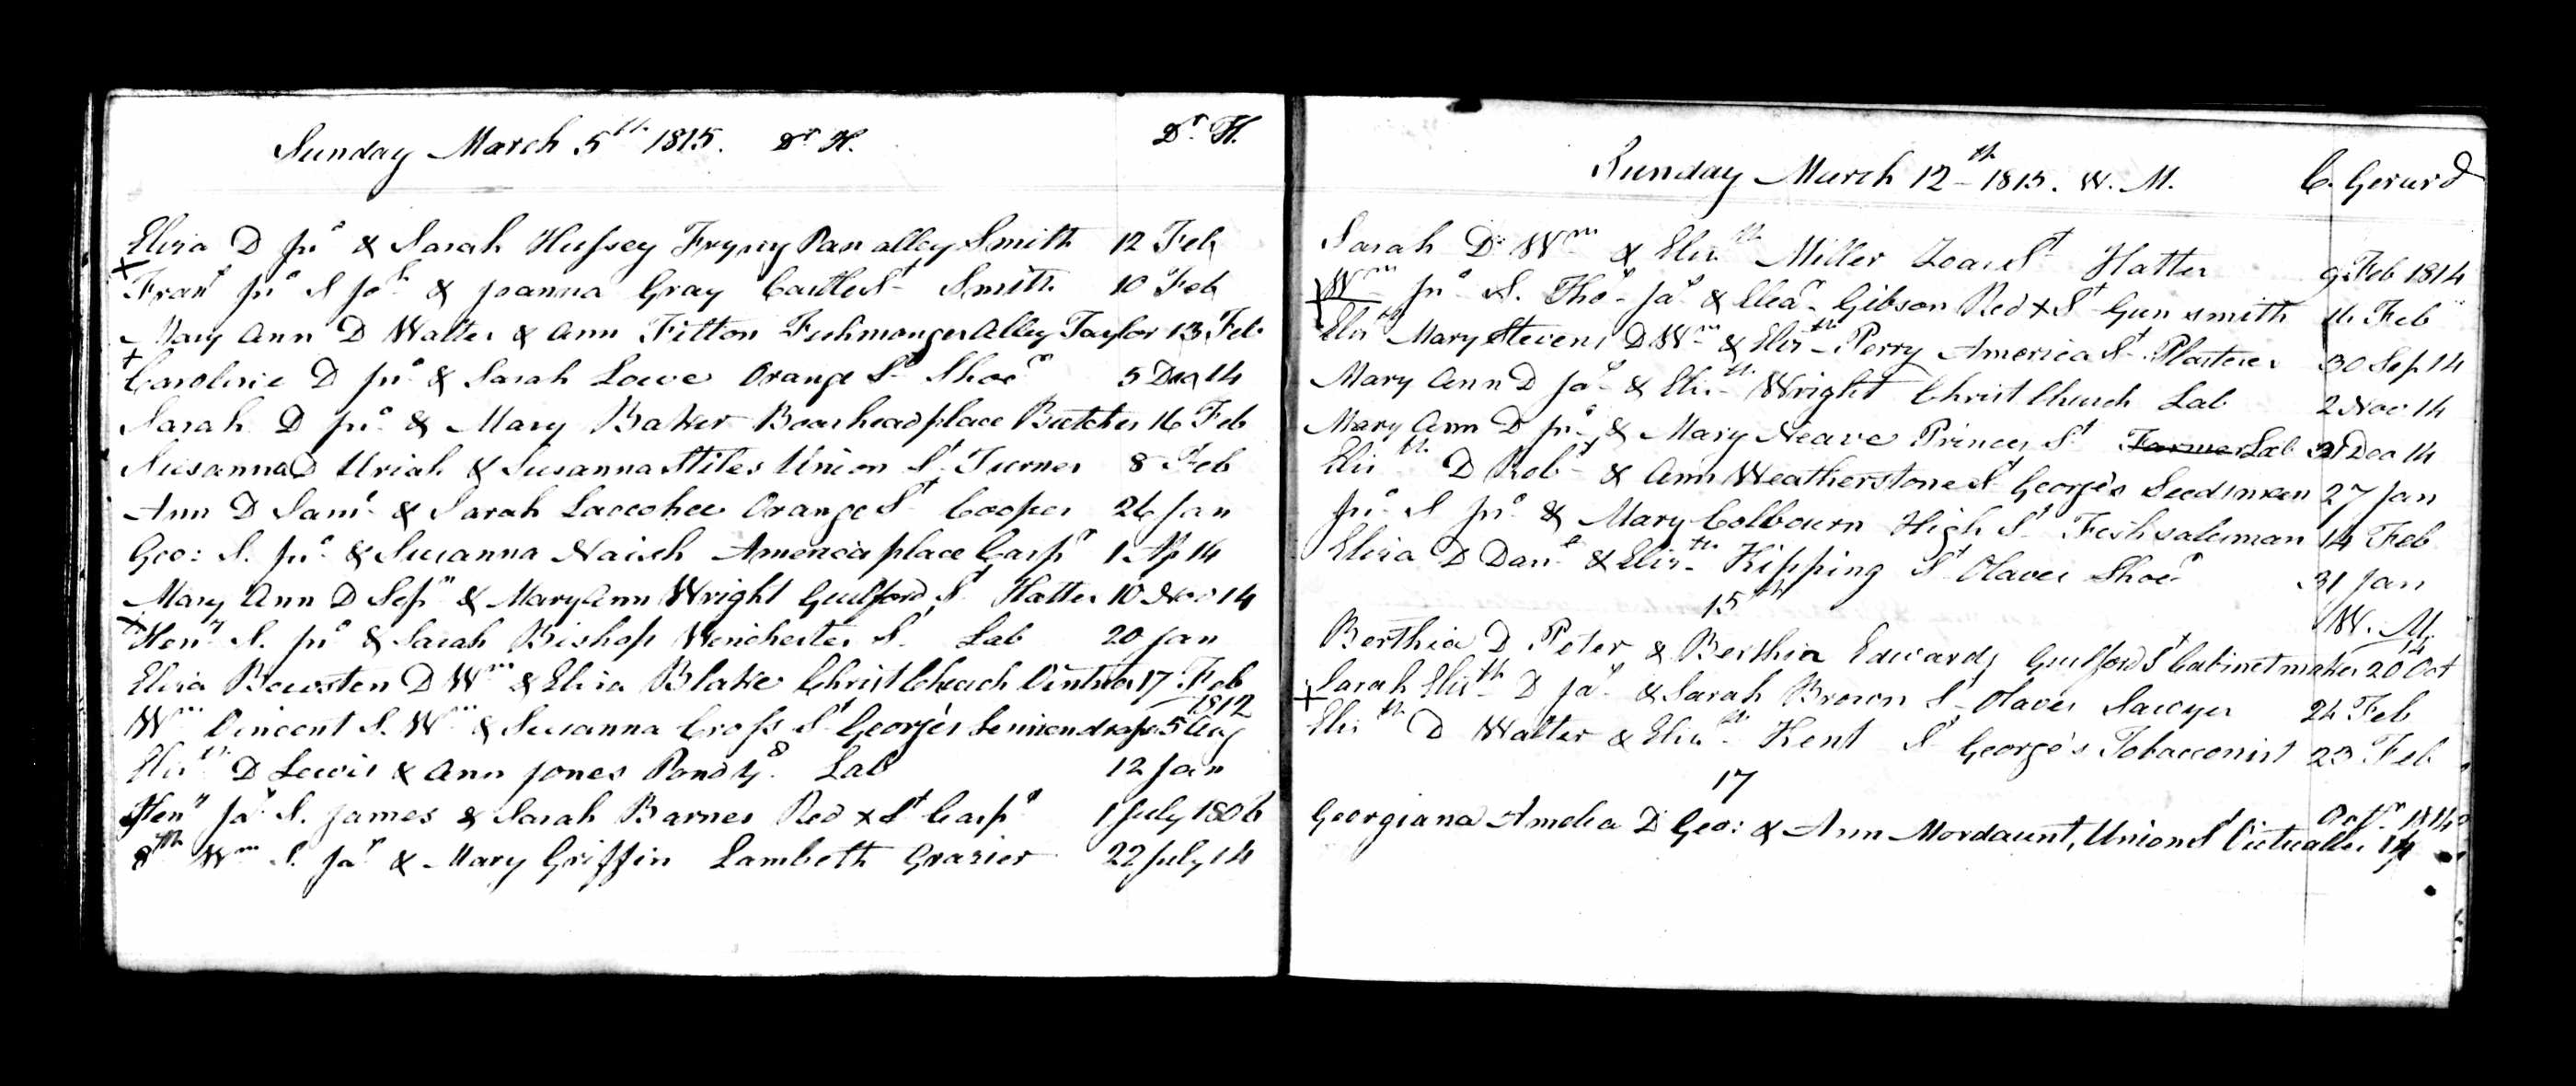 Sunday March 5th 1815. Dr H. Dr. H.
Eliza D Jno & Sarah Hussey Fryng Pan alley Smith 12 Feb
Frans Jno S Jos & Joanna Gray Castle St Smith 10 Feb
Mary Ann D Walter & Ann Fitton Fishmonger Alley Taylor 13 Feb
Caroline D Jno & Sarah Lowe Orange St Shoer 5 Dec 14
Sarah D Jno & Mary Baker Boarhead place Butcher 16 Feb
Susanna D Uriah & Susanna Stiles Union St Turner 8 Feb
Ann D Saml & Sarah Orange St Cooper 26 Jan
Geo: S. Jno & Susanna Naish America place Carpr 1 Ap 14
Mary Ann D Sepn & Mary Ann Wright Guilford St Hatter 10 Nov 14
Heny S. Jno & Sarah Bishop Winchester St Lab 20 Jan
Eliza D Wm & Eliza Blake Christ Church 17 Feb
Wm Vincent S. Wm & Susanna Cross St George's Linnendraper 5 Aug 1812
Elizth D Lewis & Ann Jones Pond Yd Lab 12 Jan
Heny Jas S. James & Sarah Barnes Red x St Carpr 1 July 1806
8th Wm S. Jas & Mary Griffin Lambeth Grazier 22 July 14
Sunday March 12th 1815. W. M. C. Gerard
Sarah D Wm & Elizth Miller Zoar St Hatter 9 Feb 1814
Wm Jno S. Thos Jas & Eleanr Gibson Red x St Gun smith 11 Feb
Elizth Mary Stevens D Wm & Elizth Perry America St Plasterer 30 Sep 14
Mary Ann D Jas & Elizth Wright Christ Church Lab 2 Nov 14
Mary Ann D Jno & Mary Neave Princes St Farmer Lab Dec 14
Elizth D Robt & Ann Weatherstone St George's Seedsman 27 Jan
Jno S Jno & Mary Colbourn High St Fishsalesman 14 Feb
Eliza D Danl & Elizth Kipping St Olaves Shoer 31 Jan
15th W. M.
Berthia D Peter & Berthia Edwards Guilford St Cabinet maker 20 Oct 14
Sarah Elizth D Jas & Sarah Brown St Olaves Sawyer 24 Feb
Elizth D Walter & Elizth Kent St George's Tobacconist 23 Feb
17
Georgiana Amelia D Geo: & Ann Mordaunt, Union St Victualler 14